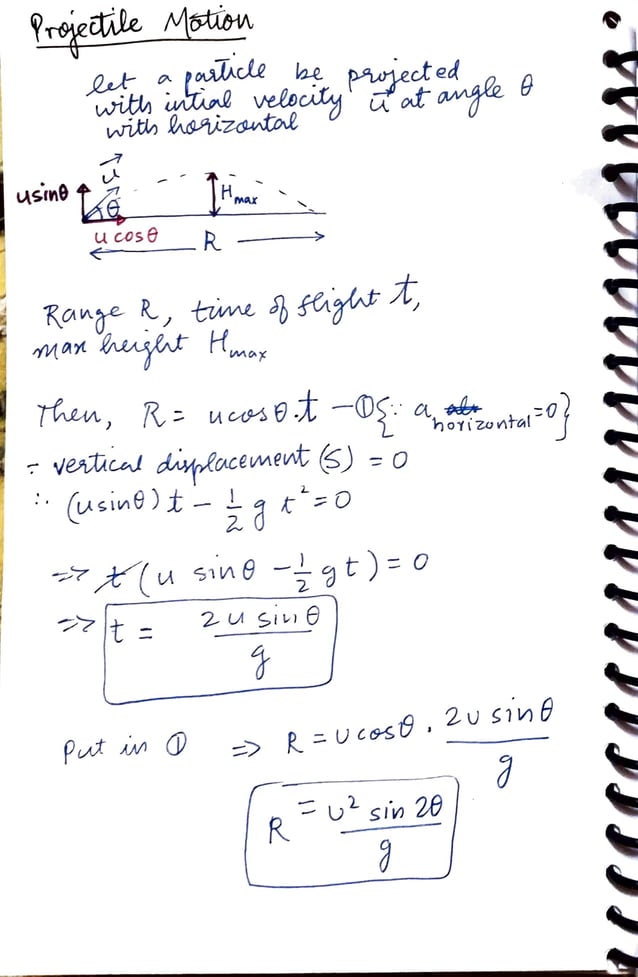 Projectile Motion
let a particle be projected
with intial velocity u⃗ at angle θ
with horizontal
u⃗
usinθ
θ
Hmax
u cosθ
R
Range R, time of flight t,
max height Hmax
Then, R = ucosθ.t —① {∵ a, horizontal = 0}
∵ vertical displacement (S) = 0
∴ (usinθ) t - 1/2 g t² = 0
=> t (u sinθ - 1/2 gt) = 0
=> t = 2u sinθ / g
Put in ① => R = ucosθ . 2u sinθ / g
R = u² sin 2θ / g